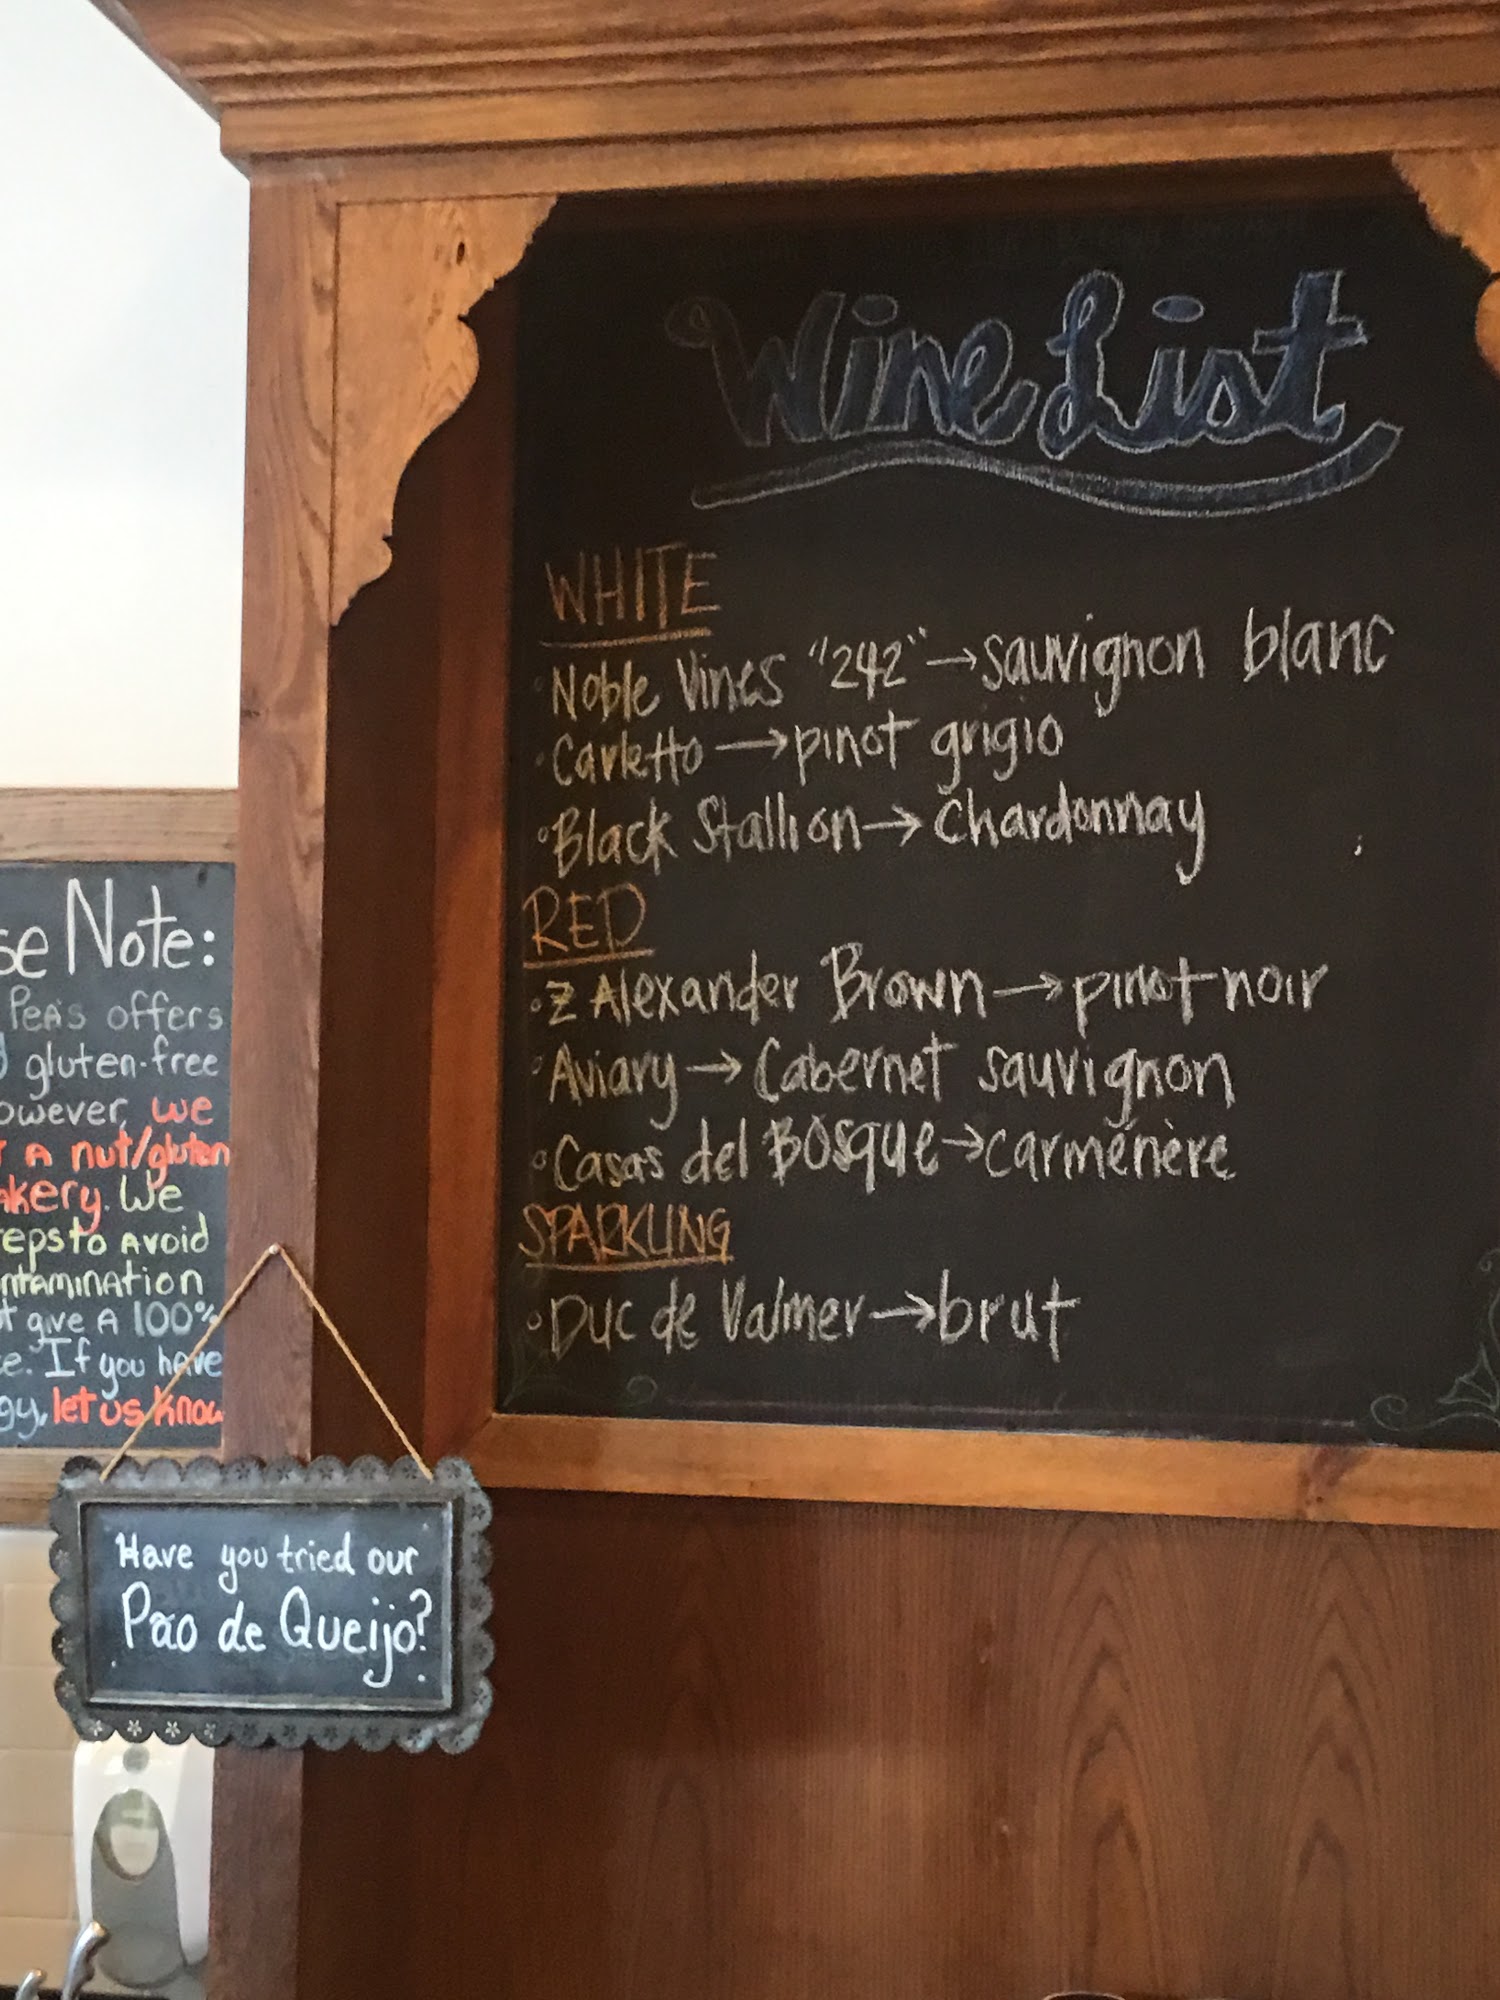 Wine List
WHITE
Noble Vines "242" → sauvignon blanc
Carletto → pinot grigio
Black Stallion → Chardonnay
RED
Z Alexander Brown → pinot noir
Aviary → Cabernet sauvignon
Casas del Bosque → carménère
SPARKLING
Duc de Valmer → brut
Note:
Pea's offers
gluten-free
we
A nut/gluten
We
to Avoid
give A 100%
If you have
let us know
Have you tried our
Pão de Queijo?